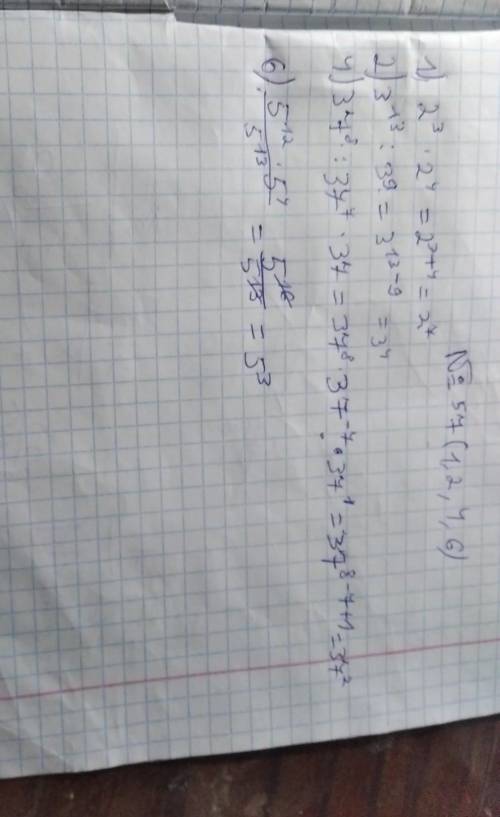 № 57 (1, 2, 4, 6)
1) 2³ · 2⁴ = 2³⁺⁴ = 2⁷
2) 3¹³ : 3⁹ = 3¹³⁻⁹ = 3⁴
4) 37⁸ : 37⁷ · 37 = 37⁸ · 37⁻⁷ · 37¹ = 37⁸⁻⁷⁺¹ = 37²
6) 5¹² · 5⁴ / 5¹³ = 5¹⁶ / 5¹³ = 5³